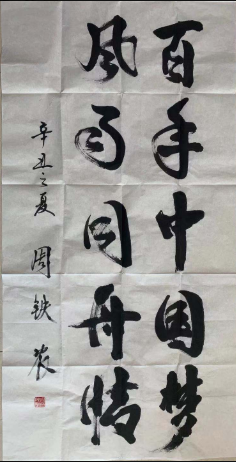 百年中国梦
风雨同舟情
辛丑之夏 周铁农